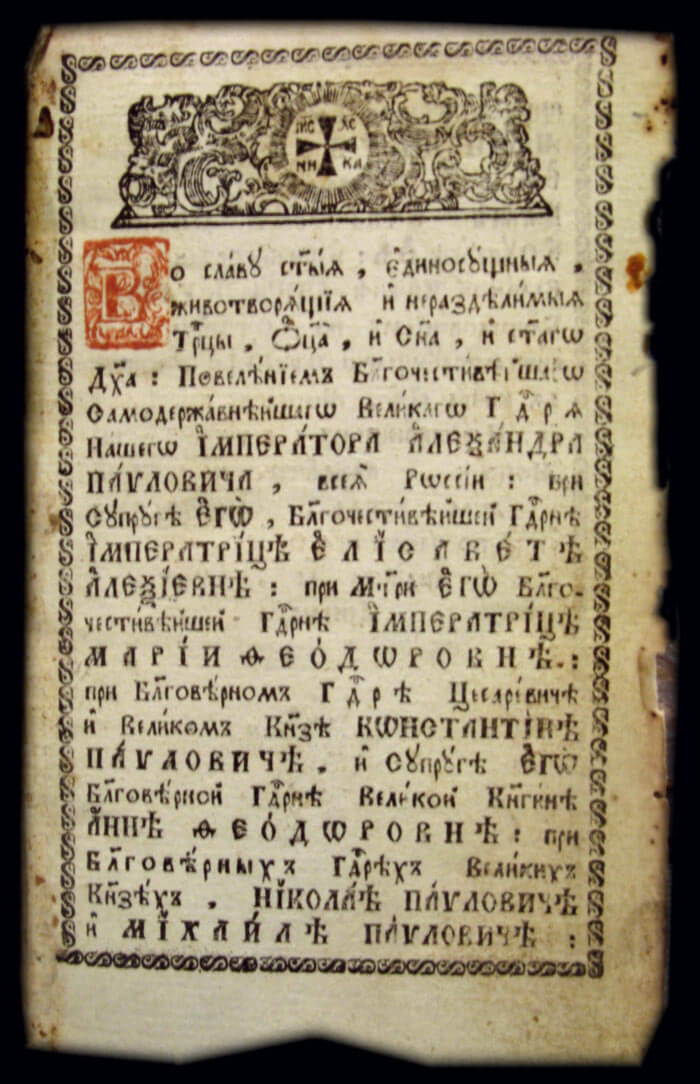 ІИС ХС
НИ КА
Во сла́вꙋ ст҃ы́ѧ , є҆диносꙋ́щныѧ ,
животворѧ́щїѧ и҆ нераздѣли́мыѧ
Трⷪ҇цы , Ѻ҆ц҃а̀ , и҆ Сн҃а , и҆ ст҃а́гѡ
Дх҃а : Повелѣ́нїемъ Бл҃гочести́вѣйшагѡ
Самодержа́внѣйшагѡ Вели́кагѡ Гдⷭ҇рѧ
на́шегѡ І҆МПЕРА́ТОРА А҆ЛЕѮА́НДРА
ПА́ѴЛОВИЧА , всеѧ̀ Рѡссі́и : при
Сꙋпрꙋ́гѣ Є҆ГѠ̀ , Бл҃гочести́вѣйшей Гдⷭ҇рнѣ
І҆МПЕРАТРІ́ЦѢ Є҆ЛІСАВЕ́ТѢ
А҆ЛЕѮІ́ЕВНѢ : при Мт҃ри Є҆ГѠ̀ Бл҃го-
чести́вѣйшей Гдⷭ҇рнѣ І҆МПЕРАТРІ́ЦѢ
МАРІ́И ѲЕО́ДѠРОВНѢ :
при Бл҃говѣ́рномъ Гдⷭ҇рѣ Цесаре́вичѣ
и҆ Вели́комъ Кн҃зѣ КѠНСТАНТІ́НѢ
ПА́ѴЛОВИЧѢ . и҆ Сꙋпрꙋ́гѣ Є҆ГѠ̀
Бл҃говѣ́рной Гдⷭ҇рнѣ Вели́кой Кн҃ги́нѣ
А҆́ННѢ ѲЕО́ДѠРОВНѢ : при
Бл҃говѣ́рныхъ Гдⷭ҇рѣхъ Вели́кихъ
Кн҃зѣхъ , НІКОЛА́Ѣ ПА́ѴЛОВИЧѢ
и҆ МІХАИ́ЛѢ ПА́ѴЛОВИЧѢ :